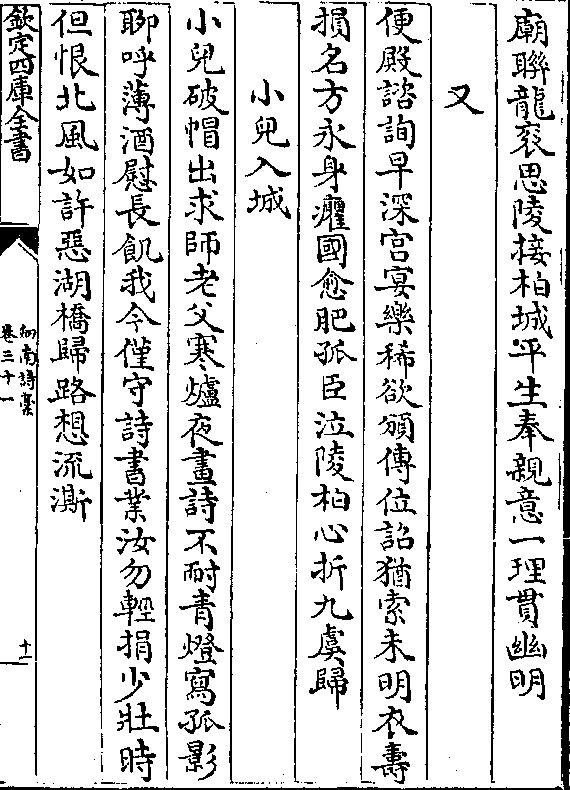 廟聯龍袞思陵接柏城平生奉親意一理貫幽明
又
便殿諮詢早深宫宴樂稀欲頒傳位詔猶索未明衣壽
損名方永身癯國愈肥孤臣泣陵柏心折九虞歸
小兒入城
小兒破帽出求師老父寒爐夜畫詩不耐青燈寫孤影
聊呼薄酒慰長飢我今僅守詩書業汝勿輕捐少壯時
但恨北風如許惡湖橋歸路想流澌
欽定四庫全書
劍南詩藁
卷三十一
十一